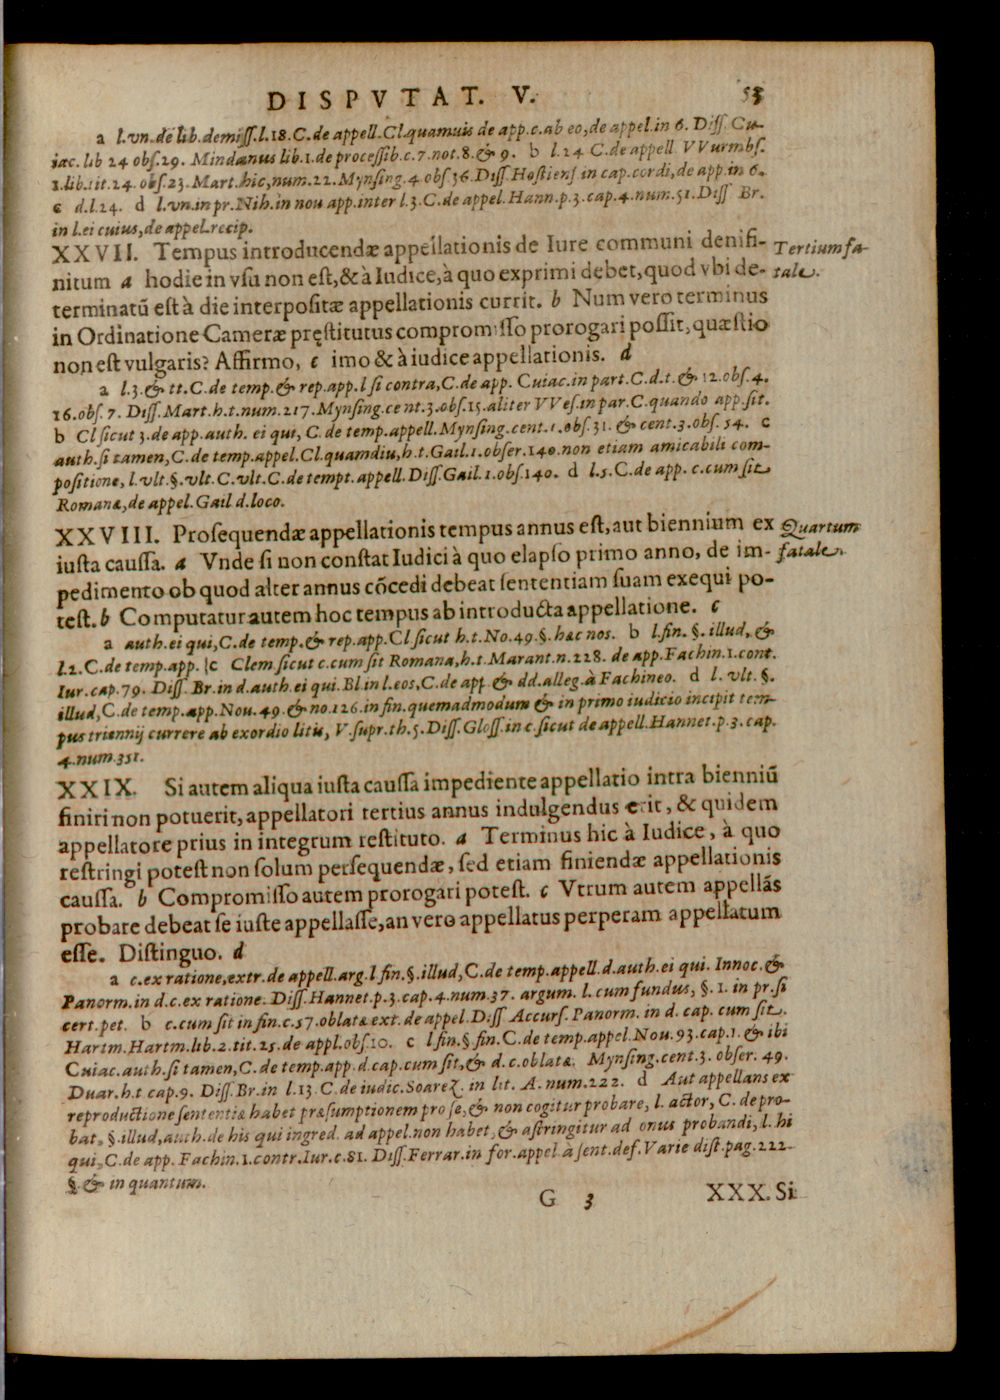 DISPVTAT. V. 53
a l.vn.de lib.demiſſ.l.18.C.de appell.Cl.quamuis de app.c.ab eo,de appel.in 6. Diſſ. Cu-
iac.lib 24 obſ.29. Mindanus lib.1.de proceſſib.c.7.not.8.& 9. b l.24 C.de appell VVurmbſ.
1.lib.tit.24. obſ.23.Mart.hic,num.22.Mynſing.4 obſ 36.Diſſ.Hoſtienſ in cap.cordi,de app.in 6.
c d.l.24. d l.vn.in pr.Nih.in nou app.inter l.3.C.de appel.Hann.p.3.cap.4.num.51.Diſſ Br.
in l.ei cuius,de appel.recip.
XXVII. Tempus introducendæ appellationis de Iure communi denifi- Tertium fa-
nitum a hodie in vſu non eſt,& à Iudice,à quo exprimi debet,quod vbi de- tale.
terminatū eſt à die interpoſitæ appellationis currit. b Num vero terminus
in Ordinatione Cameræ pręſtitutus compromiſſo prorogari poſſit,quæſtio
non eſt vulgaris? Affirmo, c imo & à iudice appellationis. d
a l.3.& tt.C.de temp.& rep.app.l ſi contra,C.de app. Cuiac.in part.C.d.t.& 12.obſ.4.
16.obſ.7. Diſſ.Mart.h.t.num.217.Mynſing.cent.3.obſ.15.aliter VVeſ.in par.C.quando app.ſit.
b Cl ſicut 3.de app.auth. ei qui, C.de temp.appell.Mynſing.cent.1.obſ.31. & cent.3.obſ.54. c
auth.ſi tamen,C.de temp.appel.Cl.quamdiu,h.t.Gail.1.obſer.140.non etiam amicabili com-
poſitione,l.vlt.§.vlt.C.vlt.C.de tempt.appell.Diſſ.Gail.1.obſ.140. d l.5.C.de app.c.cum ſit
Romana,de appel.Gail d.loco.
XXVIII. Proſequendæ appellationis tempus annus eſt,aut biennium ex Quartum
iuſta cauſſa. a Vnde ſi non conſtat Iudici à quo elapſo primo anno, de im- fatale.
pedimento ob quod alter annus cõcedi debeat ſententiam ſuam exequi po-
teſt. b Computatur autem hoc tempus ab introducta appellatione. c
a auth.ei qui,C.de temp.& rep.app.Cl ſicut h.t.No.49.§.hæc nos. b l.fin.§.illud,&
l.2.C.de temp.app. c Clem.ſicut c.cum ſit Romana,h.t.Marant.n.228. de app.Fachin.1.cont.
Iur.cap.79. Diſſ.Br.in d.auth.ei qui.Bl in l.eos,C.de app & dd.alleg.à Fachineo. d l. vlt.§.
illud,C.de temp.app.Nou.49.& no.126.in fin.quemadmodum & in primo iudicio incipit tem-
pus triennij currere ab exordio litis, V.ſupr.th.5.Diſſ.Gloſſ.in c.ſicut de appell.Hannet.p.3.cap.
4.num.351.
XXIX. Si autem aliqua iuſta cauſſa impediente appellatio intra bienniū
finiri non potuerit,appellatori tertius annus indulgendus erit, & quidem
appellatore prius in integrum reſtituto. a Terminus hic à Iudice, à quo
reſtringi poteſt non ſolum perſequendæ, ſed etiam finiendæ appellationis
cauſſa. b Compromiſſo autem prorogari poteſt. c Vtrum autem appellãs
probare debeat ſe iuſte appellaſſe,an vero appellatus perperam appellatum
eſſe. Diſtinguo. d
a c.ex ratione,extr.de appell.arg.l fin.§.illud,C.de temp.appell.d.auth.ei qui. Innoc.&
Panorm.in d.c.ex ratione. Diſſ.Hannet.p.3.cap.4.num.37. argum. l.cum fundus, §.1. in pr.ſi
cert.pet. b c.cum ſit in fin.c.57.oblata ext.de appel.Diſſ Accurſ.Panorm. in d. cap. cum ſit.
Hartm.Hartm.lib.2.tit.25.de appl.obſ.10. c l fin.§ fin.C.de temp.appel Nou.93.cap.1.& ibi
Cuiac.auth.ſi tamen,C.de temp.app d.cap.cum ſit,& d.c.oblata. Mynſing.cent.3. obſer. 49.
Duar.h.t cap.9. Diſſ.Br.in l.13.C.de iudic.Soarez. in lit. A. num.222. d Aut appellans ex
reproductione ſententia habet præſumptionem pro ſe,& non cogitur probare, l. actor, C.de pro-
bat, §.illud,auth.de his qui ingred. ad appel.non habet, & aſtringitur ad onus probandi,l.hi
qui,C.de app. Fachin.1.contr.Iur.c.81. Diſſ.Ferrar.in for.appel à ſent.def.Varie diſt.pag.222.
§. & in quantum.
G 3 XXX. Si